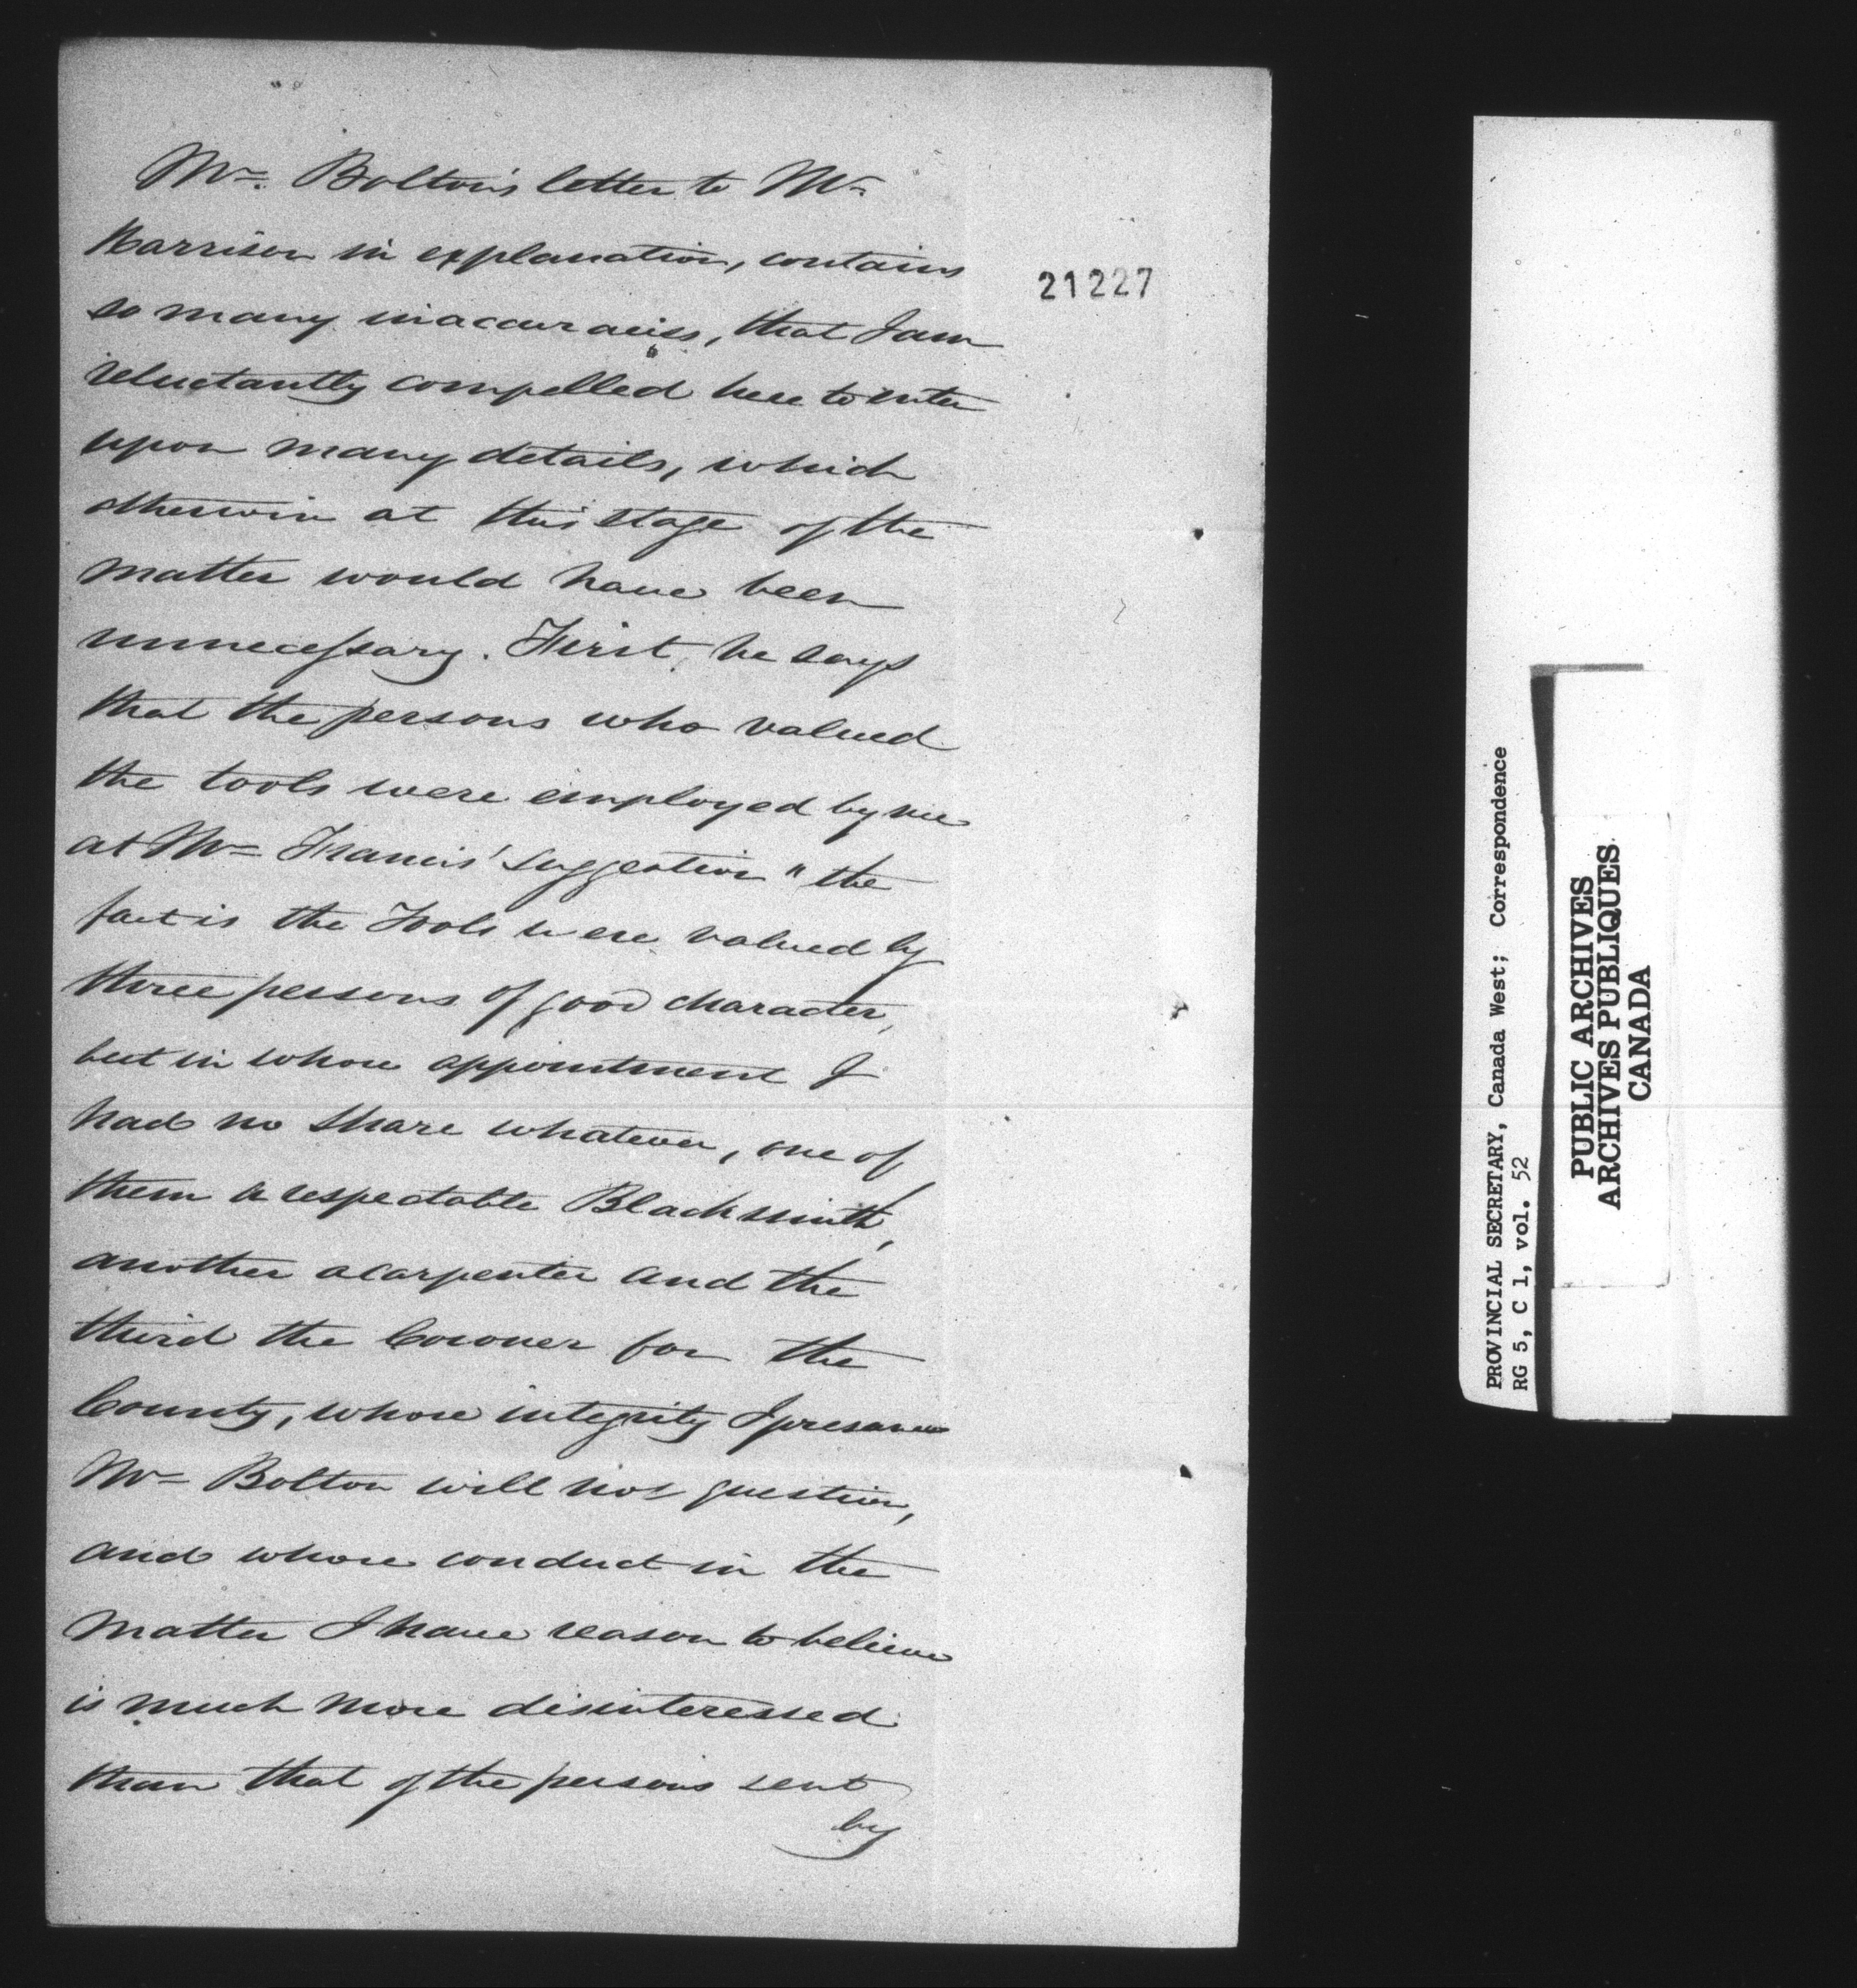 Mr. Bolton's letter to Mr
Harrison in explanation, contains
so many inaccuracies, that I am
reluctantly compelled here to enter
upon many details, which
otherwise at this stage of the
matter would have been
unnecessary. First, he says
that the persons who valued
the tools were employed by me
at Mr Francis' suggestion" the
fact is the Tools were valued by
three persons of good character,
but in whose appointment I
had no share whatever, one of
them a respectable Blacksmith,
another a carpenter and the
third the Coroner for the
County, whose integrity I presume
Mr Bolton will not question,
and whose conduct in the
matter I have reason to believe
is much more disinterested
than that of the persons sent
by
21227
PROVINCIAL SECRETARY, Canada West; Correspondence
RG 5, C 1, vol. 52
PUBLIC ARCHIVES
ARCHIVES PUBLIQUES
CANADA